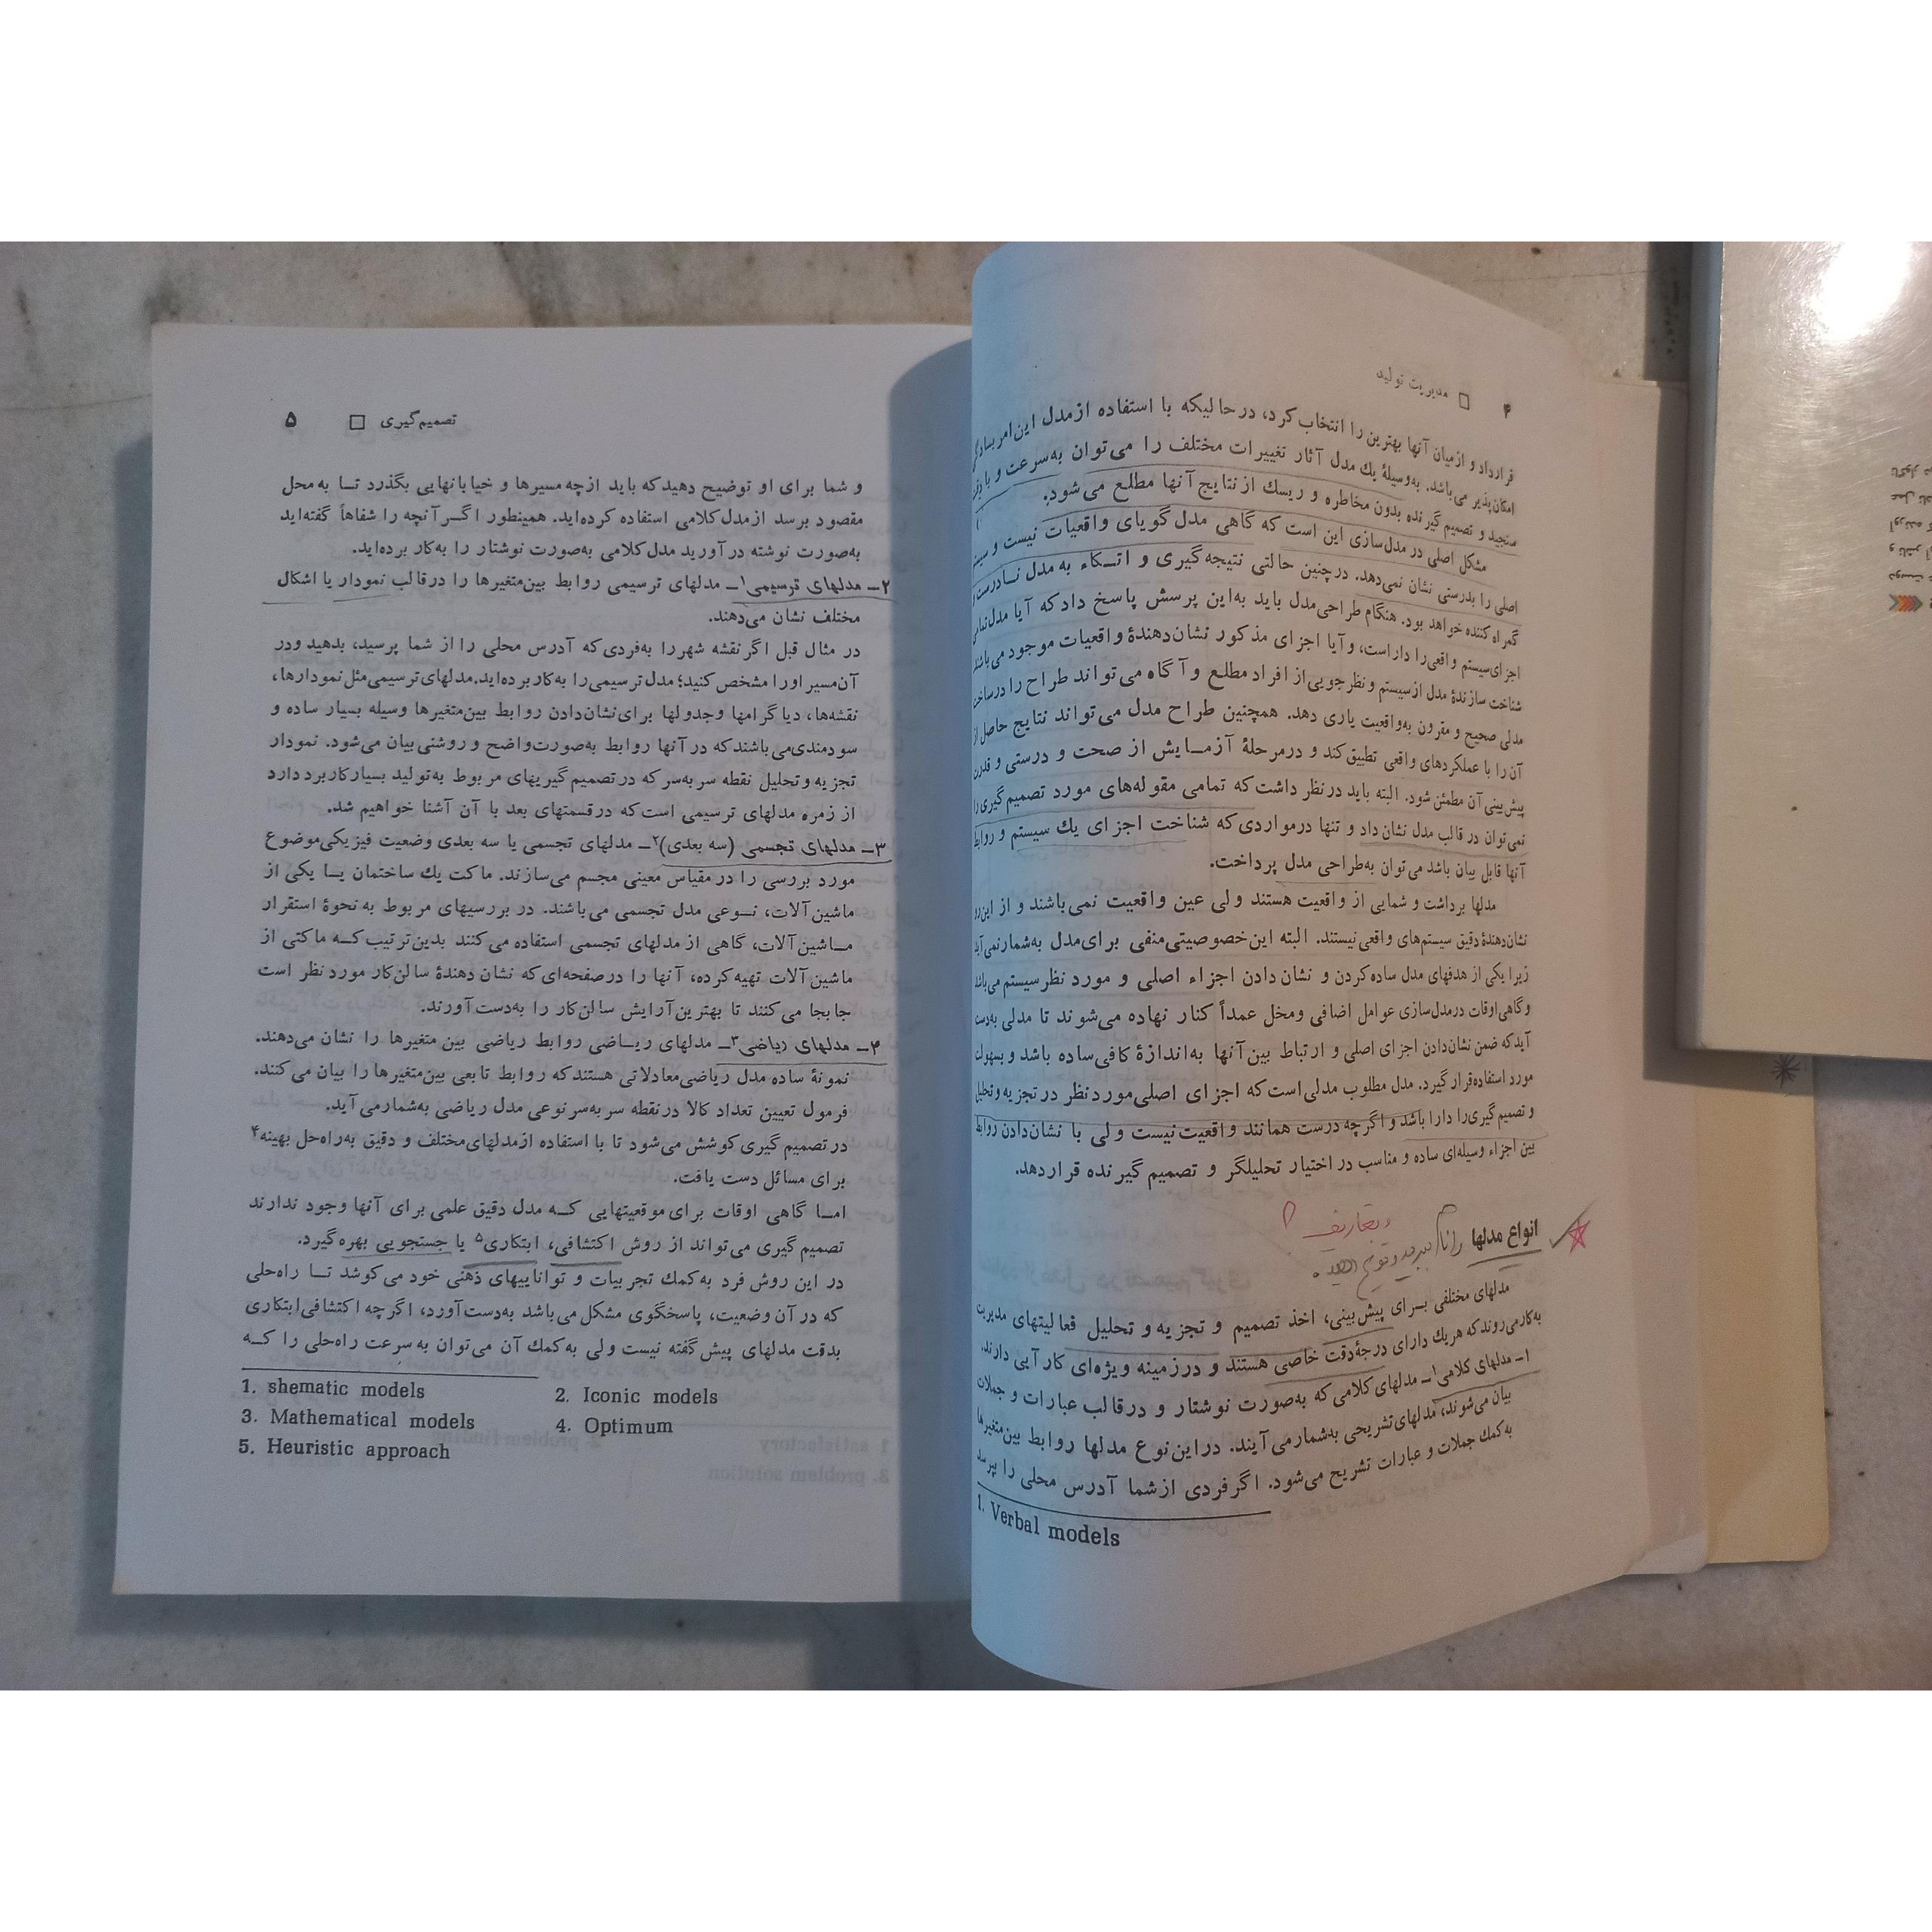 ۴ □ مدیریت تولید
قرارداد و ازمیان آنها بهترین را انتخاب کرد، درحالیکه با استفاده ازمدل این‌امر
امکان‌پذیر می‌باشد. به‌وسیلهٔ یك مدل آثار تغییرات مختلف را می‌توان به‌سرعت و با
سنجید و تصمیم گیرنده بدون مخاطره و ریسك ازنتایج آنها مطلع می‌شود.
مشکل اصلی در مدل‌سازی این است که گاهی مدل گویای واقعیات نیست و
اصلی را بدرستی نشان نمی‌دهد. درچنین حالتی نتیجه‌گیری و اتـکاء به‌مدل نـادرست
گمراه‌کننده خواهد بود. هنگام طراحی‌مدل باید به‌این پرسش پاسخ دادکه آیا مدل
اجزای‌سیستم واقعی‌را داراست، وآیا اجزای مذکور نشان‌دهندهٔ واقعیات موجود می‌باشند
شناخت سازندهٔ مدل ازسیستم و نظرجویی‌از افراد مطلع و آگاه می‌تواند طراح را درساخت
مدلی صحیح و مقرون به‌واقعیت یاری دهد. همچنین طراح مدل می‌تواند نتایج حاصل از
آن را با عملکردهای واقعی تطبیق‌کند و درمرحلهٔ آزمـایش از صحت و درستی و قدرت
پیش‌بینی‌آن مطمئن شود. البته باید درنظر داشت‌که تمامی مقوله‌های مورد تصمیم‌گیری را
نمی‌توان در قالب مدل نشان‌داد و تنها درمواردی‌که شناخت اجزای یك سیستم و روابط
آنها قابل بیان باشد می‌توان به‌طراحی مدل پرداخت.
مدلها برداشت و شمایی از واقعیت هستند ولی عین واقعیت نمی‌باشند و از این‌رو
نشان‌دهندهٔ دقیق سیستم‌های واقعی‌نیستند. البته این‌خصوصیتی‌منفی برای‌مدل به‌شمارنمی‌آید
زیرا یکی از هدفهای مدل ساده‌کردن و نشان دادن اجزاء اصلی و مورد نظرسیستم می‌باشد
وگاهی‌اوقات درمدل‌سازی عوامل اضافی ومخل عمداً کنار نهاده می‌شوند تا مدلی به‌دست
آیدکه ضمن نشان‌دادن اجزای اصلی و ارتباط بین‌آنها به‌اندازهٔ کافی‌ساده باشد و بسهولت
مورد استفاده‌قرار گیرد. مدل مطلوب مدلی‌است‌که اجزای اصلی‌موردنظر درتجزیه‌وتحلیل
و تصمیم‌گیری‌را دارا باشد و اگرچه درست همانند واقعیت‌نیست ولی با نشان‌دادن روابط
بین اجزاء وسیله‌ای ساده و مناسب در اختیار تحلیلگر و تصمیم گیرنده قراردهد.
انواع مدلها را نام ببرید و توضیح دهید. و تعاریف ؟
مدلهای مختلفی بـرای پیش‌بینی، اخذ تصمیم و تجزیه و تحلیل فعالیتهای مدیریت
به‌کارمی‌روندکه هریك دارای درجهٔ‌دقت خاصی هستند و درزمینه ویژه‌ای کارآیی دارند.
۱ـ مدلهای کلامی۱ـ مدلهای‌کلامی‌که به‌صورت نوشتار و درقالب عبارات و جملات
بیان می‌شوند، مدلهای‌تشریحی به‌شمارمی‌آیند. دراین‌نوع مدلها روابط بین‌متغیرها
به‌کمك جملات و عبارات تشریح می‌شود. اگرفردی ازشما آدرس محلی را بپرسد
1. Verbal models
تصمیم‌گیری □ ۵
و شما برای او توضیح دهیدکه باید ازچه مسیرها و خیابانهایی بگذرد تـا به‌محل
مقصود برسد ازمدل‌کلامی استفاده کرده‌اید. همینطور اگـرآنچه را شفاهاً گفته‌اید
به‌صورت نوشته درآورید مدل‌کلامی به‌صورت نوشتار را به‌کار برده‌اید.
۲ـ مدلهای ترسیمی۱ـ مدلهای ترسیمی روابط بین‌متغیرها را درقالب نمودار یا اشکال
مختلف نشان می‌دهند.
در مثال قبل اگرنقشه شهررا به‌فردی‌که آدرس محلی را از شما پرسید، بدهید ودر
آن‌مسیر اورا مشخص‌کنید؛ مدل‌ترسیمی‌را به‌کاربرده‌اید. مدلهای‌ترسیمی‌مثل‌نمودارها،
نقشه‌ها، دیاگرامها وجدولها برای‌نشان‌دادن روابط بین‌متغیرها وسیله بسیار ساده و
سودمندی‌می‌باشندکه درآنها روابط به‌صورت‌واضح و روشنی‌بیان می‌شود. نمودار
تجزیه‌وتحلیل نقطه سربه‌سرکه درتصمیم‌گیریهای مربوط به‌تولید بسیارکاربرد دارد
از زمره مدلهای ترسیمی است‌که درقسمتهای بعد با آن آشنا خواهیم شد.
۳ـ مدلهای تجسمی (سه بعدی)۲ـ مدلهای تجسمی یا سه بعدی وضعیت فیزیکی‌موضوع
مورد بررسی را در مقیاس معینی مجسم می‌سازند. ماکت یك ساختمان یـا یکی از
ماشین‌آلات، نـوعی مدل تجسمی می‌باشند. در بررسیهای مربوط به نحوهٔ استقرار
مـاشین‌آلات، گاهی از مدلهای تجسمی استفاده می‌کنند بدین‌ترتیب‌کـه ماکتی از
ماشین‌آلات تهیه‌کرده، آنها را درصفحه‌ای‌که نشان دهندهٔ سالن‌کار مورد نظر است
جابجا می‌کنند تا بهترین‌آرایش سالن‌کار را به‌دست‌آورند.
۴ـ مدلهای ریاضی۳ـ مدلهای ریـاضی روابط ریاضی بین متغیرها را نشان می‌دهند.
نمونهٔ ساده مدل ریاضی‌معادلاتی هستندکه روابط تابعی بین‌متغیرها را بیان می‌کنند.
فرمول تعیین تعداد کالا درنقطه سربه‌سرنوعی مدل ریاضی به‌شمارمی‌آید.
درتصمیم‌گیری‌کوشش می‌شود تا با استفاده ازمدلهای‌مختلف و دقیق به‌راه‌حل بهینه۴
برای مسائل دست یافت.
امـا گاهی اوقات برای موقعیتهایی کـه مدل دقیق علمی برای آنها وجود ندارند
تصمیم گیری می‌تواند از روش اکتشافی، ابتکاری۵ یا جستجویی بهره‌گیرد.
در این روش فرد به‌کمك تجربیات و تواناییهای ذهنی خود می‌کوشد تـا راه‌حلی
که در آن وضعیت، پاسخگوی مشکل می‌باشد به‌دست‌آورد، اگرچه اکتشافی‌ابتکاری
بدقت مدلهای پیش‌گفته نیست ولی به‌کمك آن می‌توان به‌سرعت راه‌حلی را کـه
1. shematic models 2. Iconic models
3. Mathematical models 4. Optimum
5. Heuristic approach